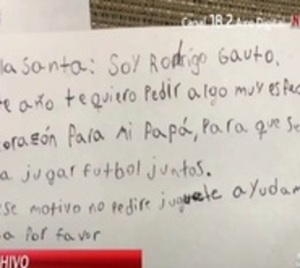 Canal 18.2 Aire Digital
la Santa: Soy Rodrigo Gauto.
te año te quiero Pedir algo muy espec
corazón Para mi Papá, Para que se
a jugar futbol juntos.
se motivo no pedire juguete ayudam
a Por favor
HIVO